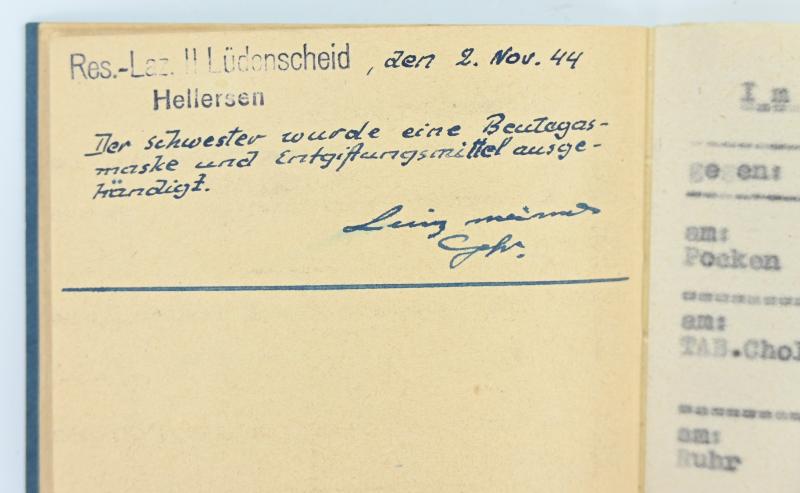 Res.-Laz. II Lüdenscheid, den 2. Nov. 44
Hellersen
Der Schwester wurde eine Beutegas-
maske und Entgiftungsmittel ausge-
händigt.
Gefr.
Im
gegen:
am:
Pocken
am:
TAB.Chol
am:
Ruhr